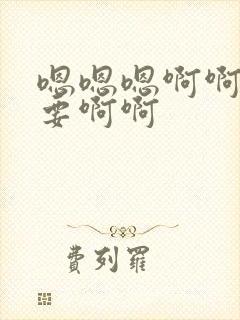 嗯嗯嗯啊啊
要啊啊
費列羅